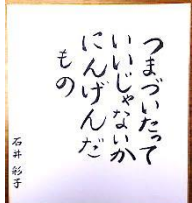 つまづいたって
いいじゃないか
にんげんだ
もの
石井彩子